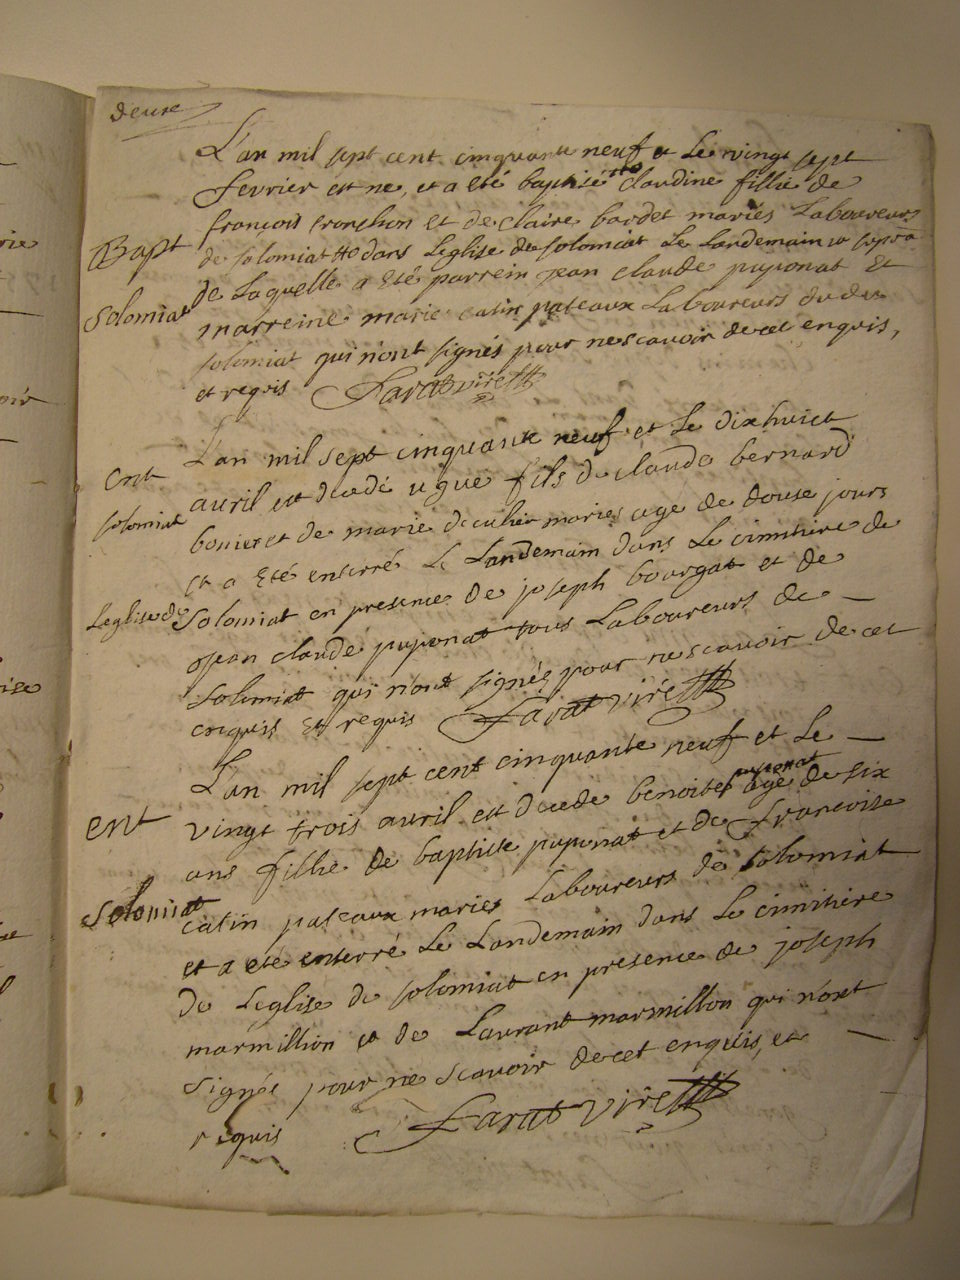 deuxe
L'an mil sept cent cinquante neuf et Le vingt sept
fevrier est ne, et a eté baptisé claudine fillie de
françois tronchon et de claire bardet mariés Laboureurs
Bapt
de solomiat dans Leglise de solomiat Le Landemain
Solomiat
de Laquelle a Eté parrein jean claude puponat Et
marreine marie catin pateaux Laboureurs du du
solomiat qui n'ont signés pour ne scavoir de cet enquis,
et requis Farat vire
L'an mil sept cinquante neuf et Le dix huict
Ent
avril est decedé fils de claude bernard
solomiat
bonier et de marie mariés age de douse jours
et a Eté enterré Le Landemain dans Le cimitiere de
Leglise de Solomiat en presence de joseph bourgat et de
jean claude puponat tous Laboureurs de
Solomiat qui n'ont signés pour ne scavoir de cet
enquis Et requis Farat vire
L'an mil sept cent cinquante neuf et Le
puponat
Ent
vingt trois avril est decede benoite age de six
ans fillie de baptiste puponat et de francoise
Solomiat
catin pateaux mariés Laboureurs de solomiat
et a eté enterré Le Landemain dans Le cimitiere
de Leglise de solomiat en presence de joseph
marmillion et de Laurant marmillon qui n'ont
signés pour ne scavoir de cet enquis, et
requis Farat vire